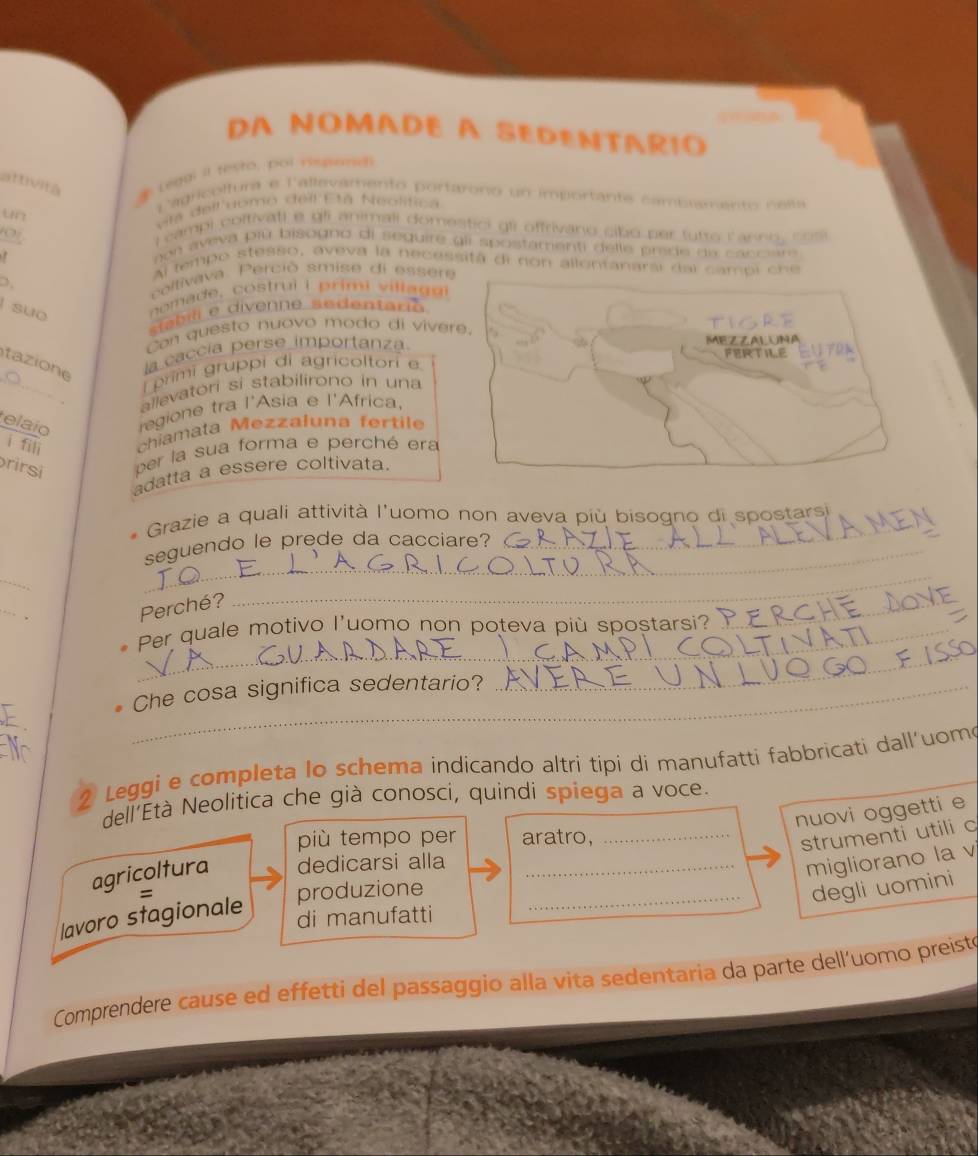 DA NOMADE A SEDENTARIO
Leggi il testo, poi rispondi.
L'agricoltura e l'allevamento portarono un importante cambiamento nella
vita dell'uomo dell'Età Neolitica.
I campi coltivati e gli animali domestici gli offrivano cibo per tutto l'anno, così
non aveva più bisogno di seguire gli spostamenti delle prede da cacciare.
Al tempo stesso, aveva la necessità di non allontanarsi dai campi che
coltivava. Perciò smise di essere
nomade, costruì i primi villaggi
stabili e divenne sedentario.
Con questo nuovo modo di vivere,
la caccia perse importanza.
I primi gruppi di agricoltori e
allevatori si stabilirono in una
regione tra l'Asia e l'Africa,
chiamata Mezzaluna fertile
per la sua forma e perché era
adatta a essere coltivata.
TIGRE
MEZZALUNA
FERTILE EUFRA
TE
attività
un
suo
tazione
telaio
i fili
rirsi
• Grazie a quali attività l'uomo non aveva più bisogno di spostarsi
seguendo le prede da cacciare? GRAZIE ALL ALEVAMEN
TO E L'AGRICOLTURA
Perché?
• Per quale motivo l'uomo non poteva più spostarsi? PERCHE DOVE
VA GUARDARE I CAMPI COLTIVATI
• Che cosa significa sedentario? AVERE UN LUOGO FISSO
2 Leggi e completa lo schema indicando altri tipi di manufatti fabbricati dall'uomo
dell'Età Neolitica che già conosci, quindi spiega a voce.
agricoltura
=
lavoro stagionale
più tempo per
dedicarsi alla
produzione
di manufatti
aratro,
nuovi oggetti e
strumenti utili c
migliorano la v
degli uomini
Comprendere cause ed effetti del passaggio alla vita sedentaria da parte dell'uomo preisto